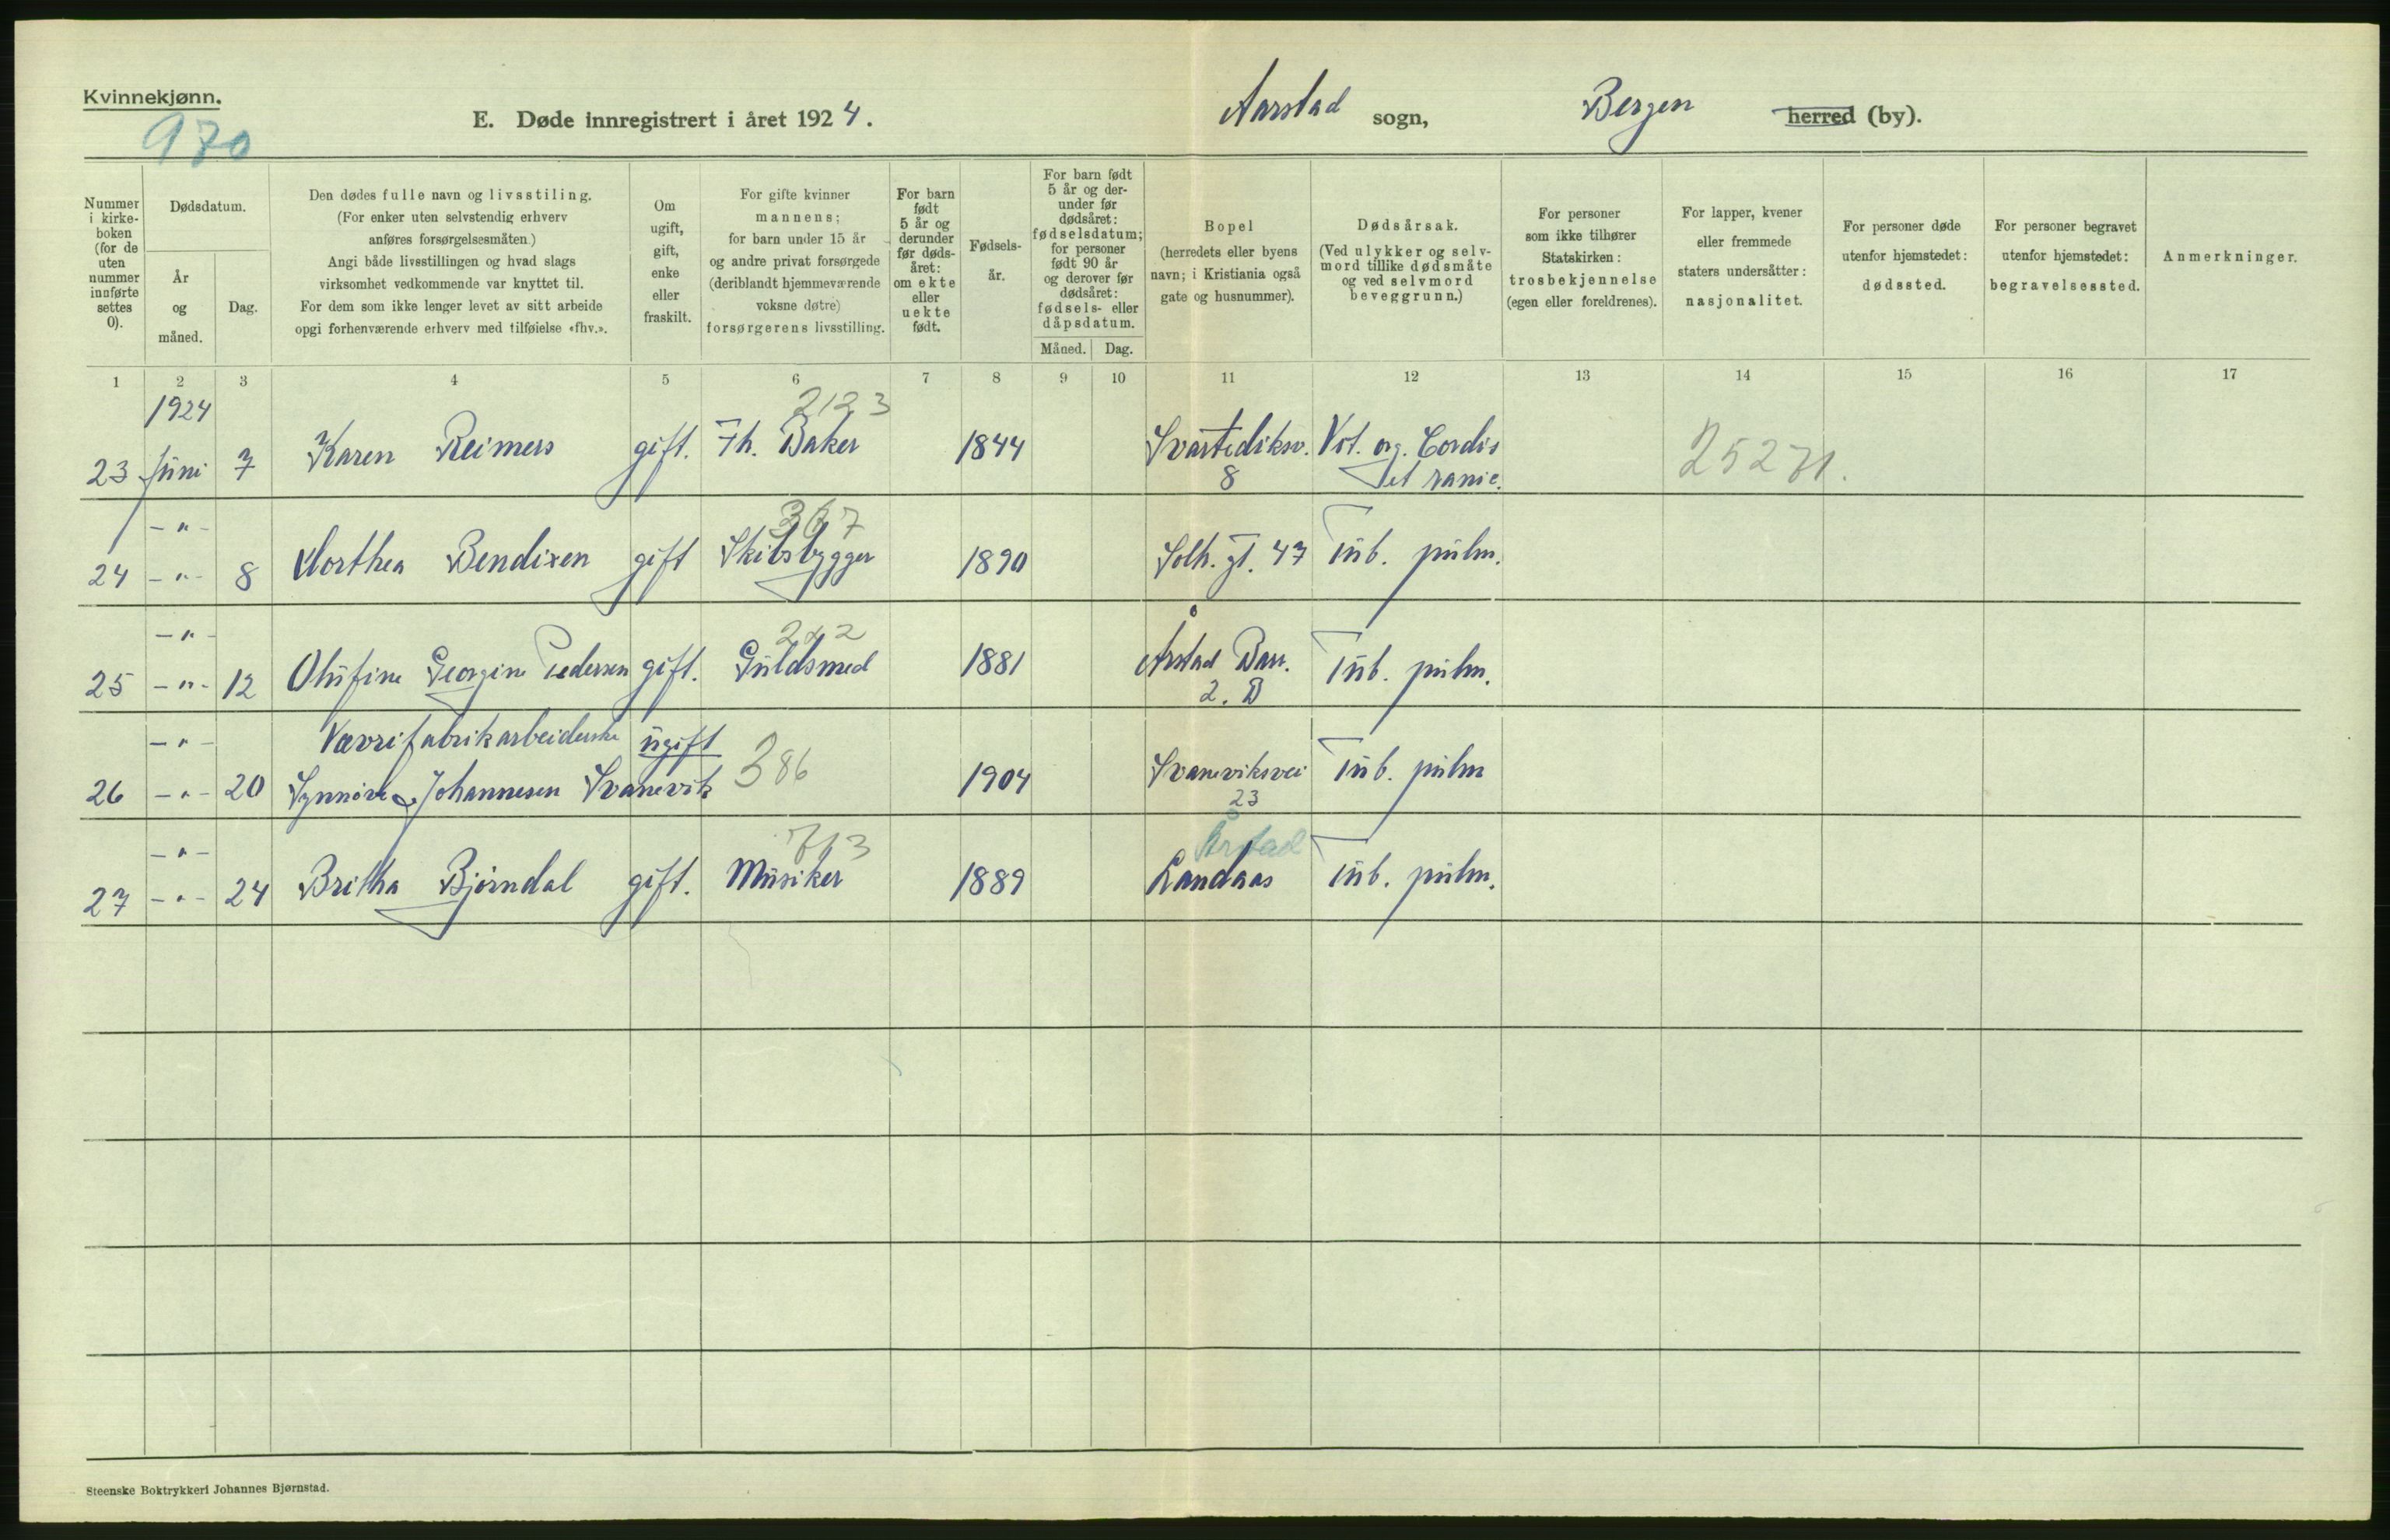 Kvinnekjønn.
970
E. Døde innregistrert i året 1924.
Aarstad sogn,
Bergen herred (by).
Nummer i kirke-boken (for de uten nummer innførte settes 0).
Dødsdatum.
År og måned.
Dag.
Den dødes fulle navn og livsstilling.
(For enker uten selvstendig erhverv
anføres forsørgelsesmåten.)
Angi både livsstillingen og hvad slags
virksomhet vedkommende var knyttet til.
For dem som ikke lenger levet av sitt arbeide
opgi forhenværende erhverv med tilføielse «fhv.».
Om
ugift,
gift,
enke
eller
fraskilt.
For gifte kvinner
mannens;
for barn under 15 år
og andre privat forsørgede
(deriblandt hjemmeværende
voksne døtre)
forsørgerens livsstilling.
For barn
født
5 år og
derunder
før døds-
året:
om ekte
eller
uekte
født.
Fødsels-
år.
For barn født
5 år og der-
under før
dødsåret:
fødselsdatum;
for personer
født 90 år
og derover før
dødsåret:
fødsels- eller
dåpsdatum.
Måned. Dag.
Bopel
(herredets eller byens
navn; i Kristiania også
gate og husnummer).
Dødsårsak.
(Ved ulykker og selv-
mord tillike dødsmåte
og ved selvmord
beveggrunn.)
For personer
som ikke tilhører
Statskirken:
trosbekjennelse
(egen eller foreldrenes).
For lapper, kvener
eller fremmede
staters undersåtter:
nasjonalitet.
For personer døde
utenfor hjemstedet:
dødssted.
For personer begravet
utenfor hjemstedet:
begravelsessted.
Anmerkninger.
1 2 3 4 5 6 7 8 9 10 11 12 13 14 15 16 17
1924 2123
23 Juni 7 Karen Reimers gift. Fh. Baker 1844 Svartediksv. Vit. org. Cordis 25271.
8 et ranie.
-"- 367
24 -"- 8 Dorthea Bendixen gift Skibsbygger 1890 Solh. gt. 47 Tub. pulm.
-"- 222
25 -"- 12 Olufine Georgine Pedersen gift. Guldsmed 1881 Årstad Barr. Tub. pulm.
2. B
-"- Vævrifabrikarbeiderske ugift
26 -"- 20 Synnøve Johannesen Svanevik 386 1904 Svaneviksvei Tub. pulm
23
-"- 713 Årstad
27 -"- 24 Britha Bjørndal gift. Musiker 1889 Landaas Tub. pulm.
Steenske Boktrykkeri Johannes Bjørnstad.